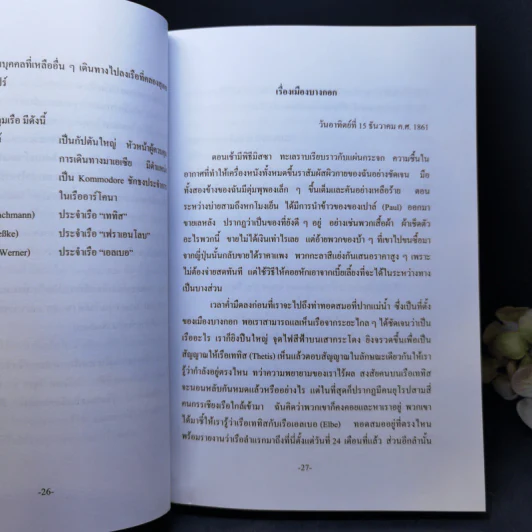 บุคคลที่เหลืออื่น ๆ เดินทางไปลงเรือที่
มเรือ มีดังนี้
เป็นกัปตันใหญ่ หัวหน้าผู้ควบคุม
การเดินทางมาเอเชีย มีตำแหน่ง
เป็น Kommodore ชักธงประจำ
ในเรืออาร์โคนา
chmann) ประจำเรือ "เททิส"
ประจำเรือ "เฟราเอนโลบ"
Werner) ประจำเรือ "เอลเบอ"
-26-
เรื่องเมืองบางกอก
วันอาทิตย์ที่ 15 ธันวาคม ค.ศ. 1861
ตอนเช้ามีพิธีมิสซา ทะเลราบเรียบราวกับแผ่นกระจก ความชื้นใน
อากาศที่ทำให้เครื่องหนังทั้งหมดขึ้นราสัมผัสผิวกายของฉันอย่างชัดเจน มือ
ทั้งสองข้างของฉันมีตุ่มพุพองเล็ก ๆ ขึ้นเต็มและคันอย่างเหลือร้าย ตอน
ระหว่างบ่ายสามถึงหกโมงเย็น ได้มีการนำข้าวของของเปาล์ (Paul) ออกมา
ขายเลหลัง ปรากฏว่าเป็นของที่ยังดี ๆ อยู่ อย่างเช่นพวกเสื้อผ้า ผ้าเช็ดตัว
อะไรพวกนี้ ขายไม่ได้เงินเท่าไรเลย แต่อ้ายพวกของบ้า ๆ ที่เขาไปขนซื้อมา
จากญี่ปุ่นนั้นกลับขายได้ราคาแพง พวกกะลาสีแย่งกันเสนอราคาสูง ๆ เพราะ
ไม่ต้องจ่ายสดทันที แต่ใช้วิธีให้คอยหักเอาจากเบี้ยเลี้ยงที่จะได้ในระหว่างทาง
เป็นบางส่วน
เวลาค่ำมืดลงก่อนที่เราจะไปถึงท่าทอดสมอที่ปากแม่น้ำ ซึ่งเป็นที่ตั้ง
ของเมืองบางกอก พอเราสามารถแลเห็นเรือจากระยะไกล ๆ ได้ชัดเจนว่าเป็น
เรืออะไร เราก็ยิงปืนใหญ่ จุดไฟสีฟ้าบนเสากระโดง ยิงจรวดขึ้นเพื่อเป็น
สัญญาณให้เรือเททิส (Thetis) เห็นแล้วตอบสัญญาณในลักษณะเดียวกันให้เรา
รู้ว่ากำลังอยู่ตรงไหน ทว่าความพยายามของเราไร้ผล สงสัยคนบนเรือเททิส
จะนอนหลับกันหมดแล้วหรืออย่างไร แต่ในที่สุดก็ปรากฏมีคนยุโรปสามสี่
คนกรรเชียงเรือใกล้เข้ามา ฉันคิดว่าพวกเขาก็คงคอยและหาเราอยู่ พวกเขา
ได้มาชี้ให้เรารู้ว่าเรือเทิสกับเรือเอลเบอ (Elbe) ทอดสมออยู่ที่ตรงไหน
พร้อมรายงานว่าเรือลำแรกมาถึงที่นี่ตั้งแต่วันที่ 24 เดือนที่แล้ว ส่วนอีกลำนั้น
-27-